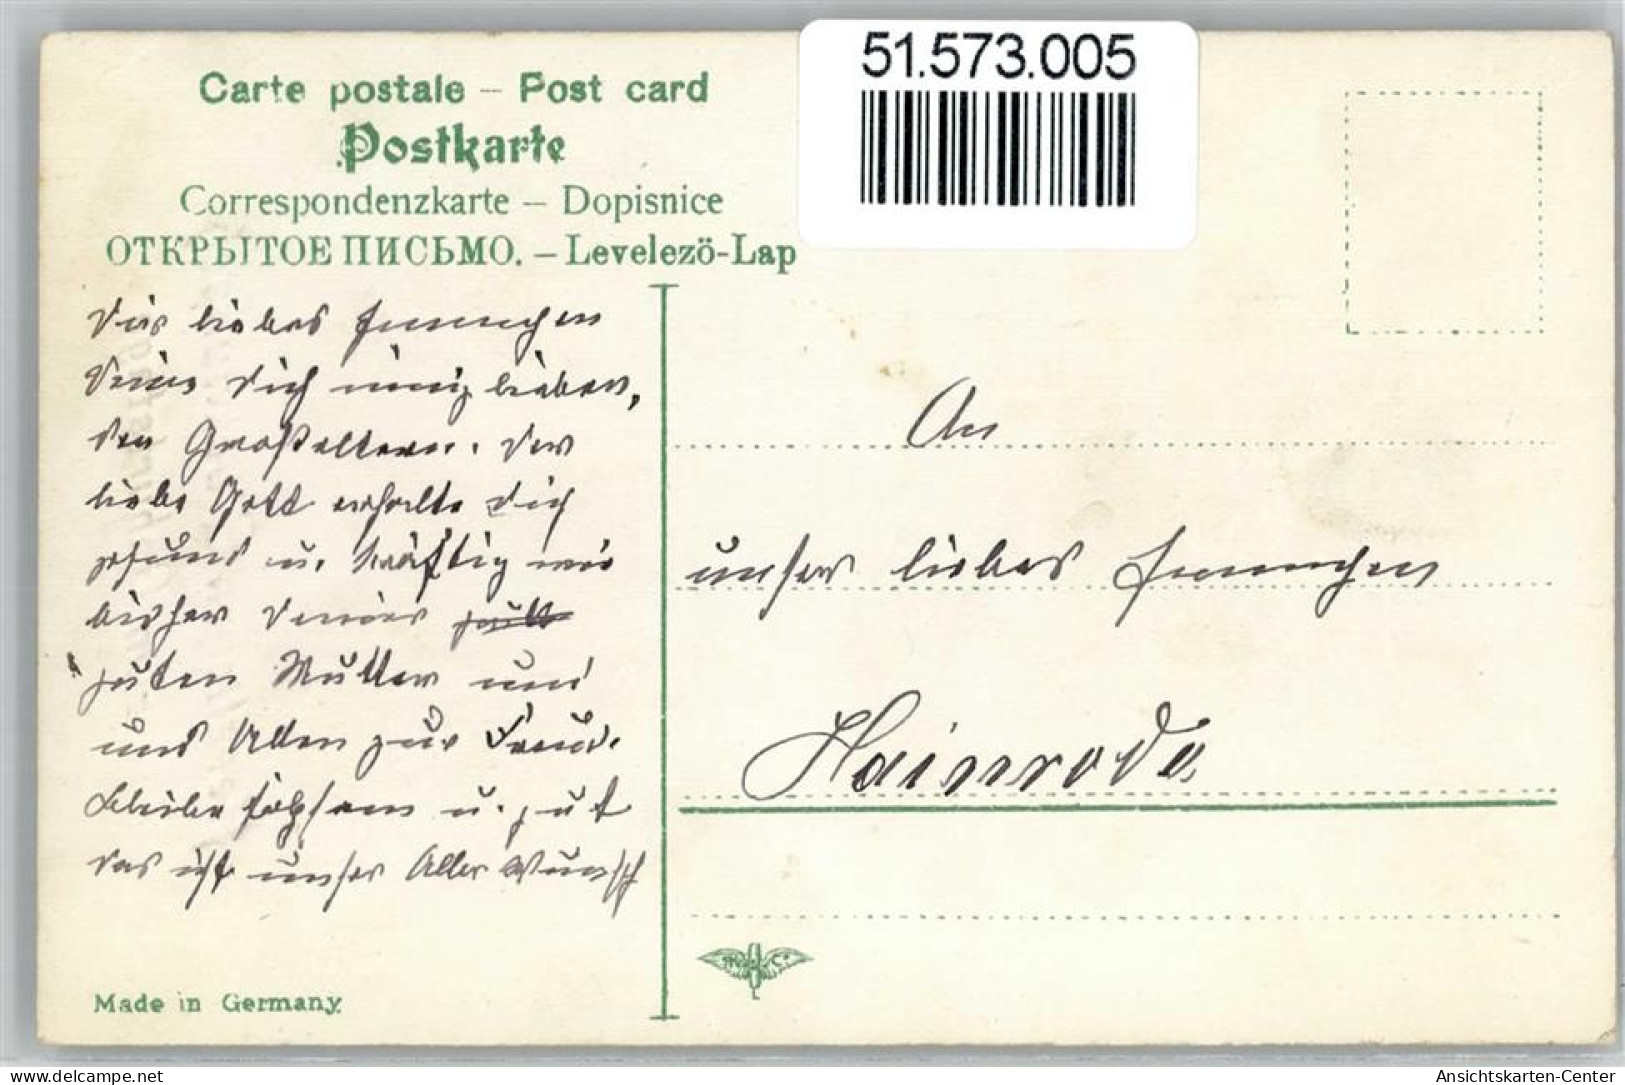 51.573.005
Carte postale – Post card
Postkarte
Correspondenzkarte – Dopisnice
ОТКРЫТОЕ ПИСЬМО. – Levelezö-Lap
Dir liebes Hennchen
Deine Dich innig liebenden
den Großeltern. Der
liebe Gott erhalte Dich
gesund u. kräftig wie
bisher Deiner
guten Mutter und
uns Allen zur Freud.
bleibe folgsam u. gut
das ist unser Aller Wunsch
An
unser liebes Hennchen
Hainrode
Made in Germany.
delcampe.net
Ansichtskarten-Center